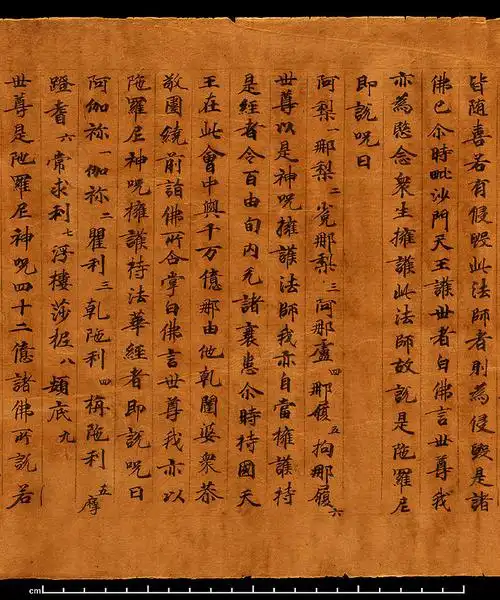 皆随喜若有侵毀此法師者則為侵毀是諸
佛已尒時毗沙門天王護世者白佛言世尊我
亦為愍念衆生擁護此法師故說是陁羅尼
即說呪曰
阿梨一那梨二㝹那梨三阿那盧四那履五拘那履六
世尊以是神呪擁護法師我亦自當擁護持
是經者令百由旬内无諸衰患尒時持國天
王在此會中與千万億那由他乹闥婆衆恭
敬圍繞前詣佛所合掌白佛言世尊我亦以
陁羅尼神呪擁護持法華經者即說呪曰
阿伽祢一伽祢二瞿利三乹陁利四栴陁利五摩
蹬耆六常求利七浮樓莎柅八頞底九
世尊是陁羅尼神呪四十二億諸佛所說若
cm